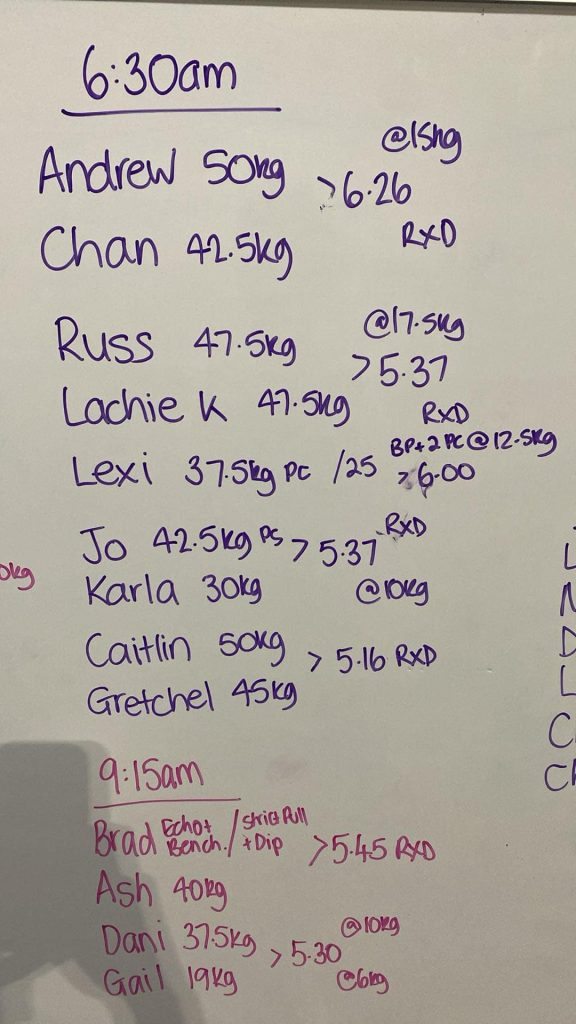 6:30am
@15kg
Andrew 50kg >6.26
Chan 42.5kg RXD
@17.5kg
Russ 47.5kg >5.37
Lachie K 47.5kg RXD
BP+2PC@12.5kg
Lexi 37.5kg PC /25 >6.00
RXD
Jo 42.5kg PS > 5.37
0kg
Karla 30kg @10kg
Caitlin 50kg > 5.16 RXD
Gretchel 45kg
L
N
D
L
C
9:15am
Brad Echo+ Bench. / Strict Pull + Dip >5.45 RXD
Ash 40kg
@10kg
Dani 37.5kg > 5.30
Gail 19kg @6kg